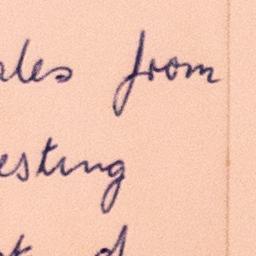 ales from
esting